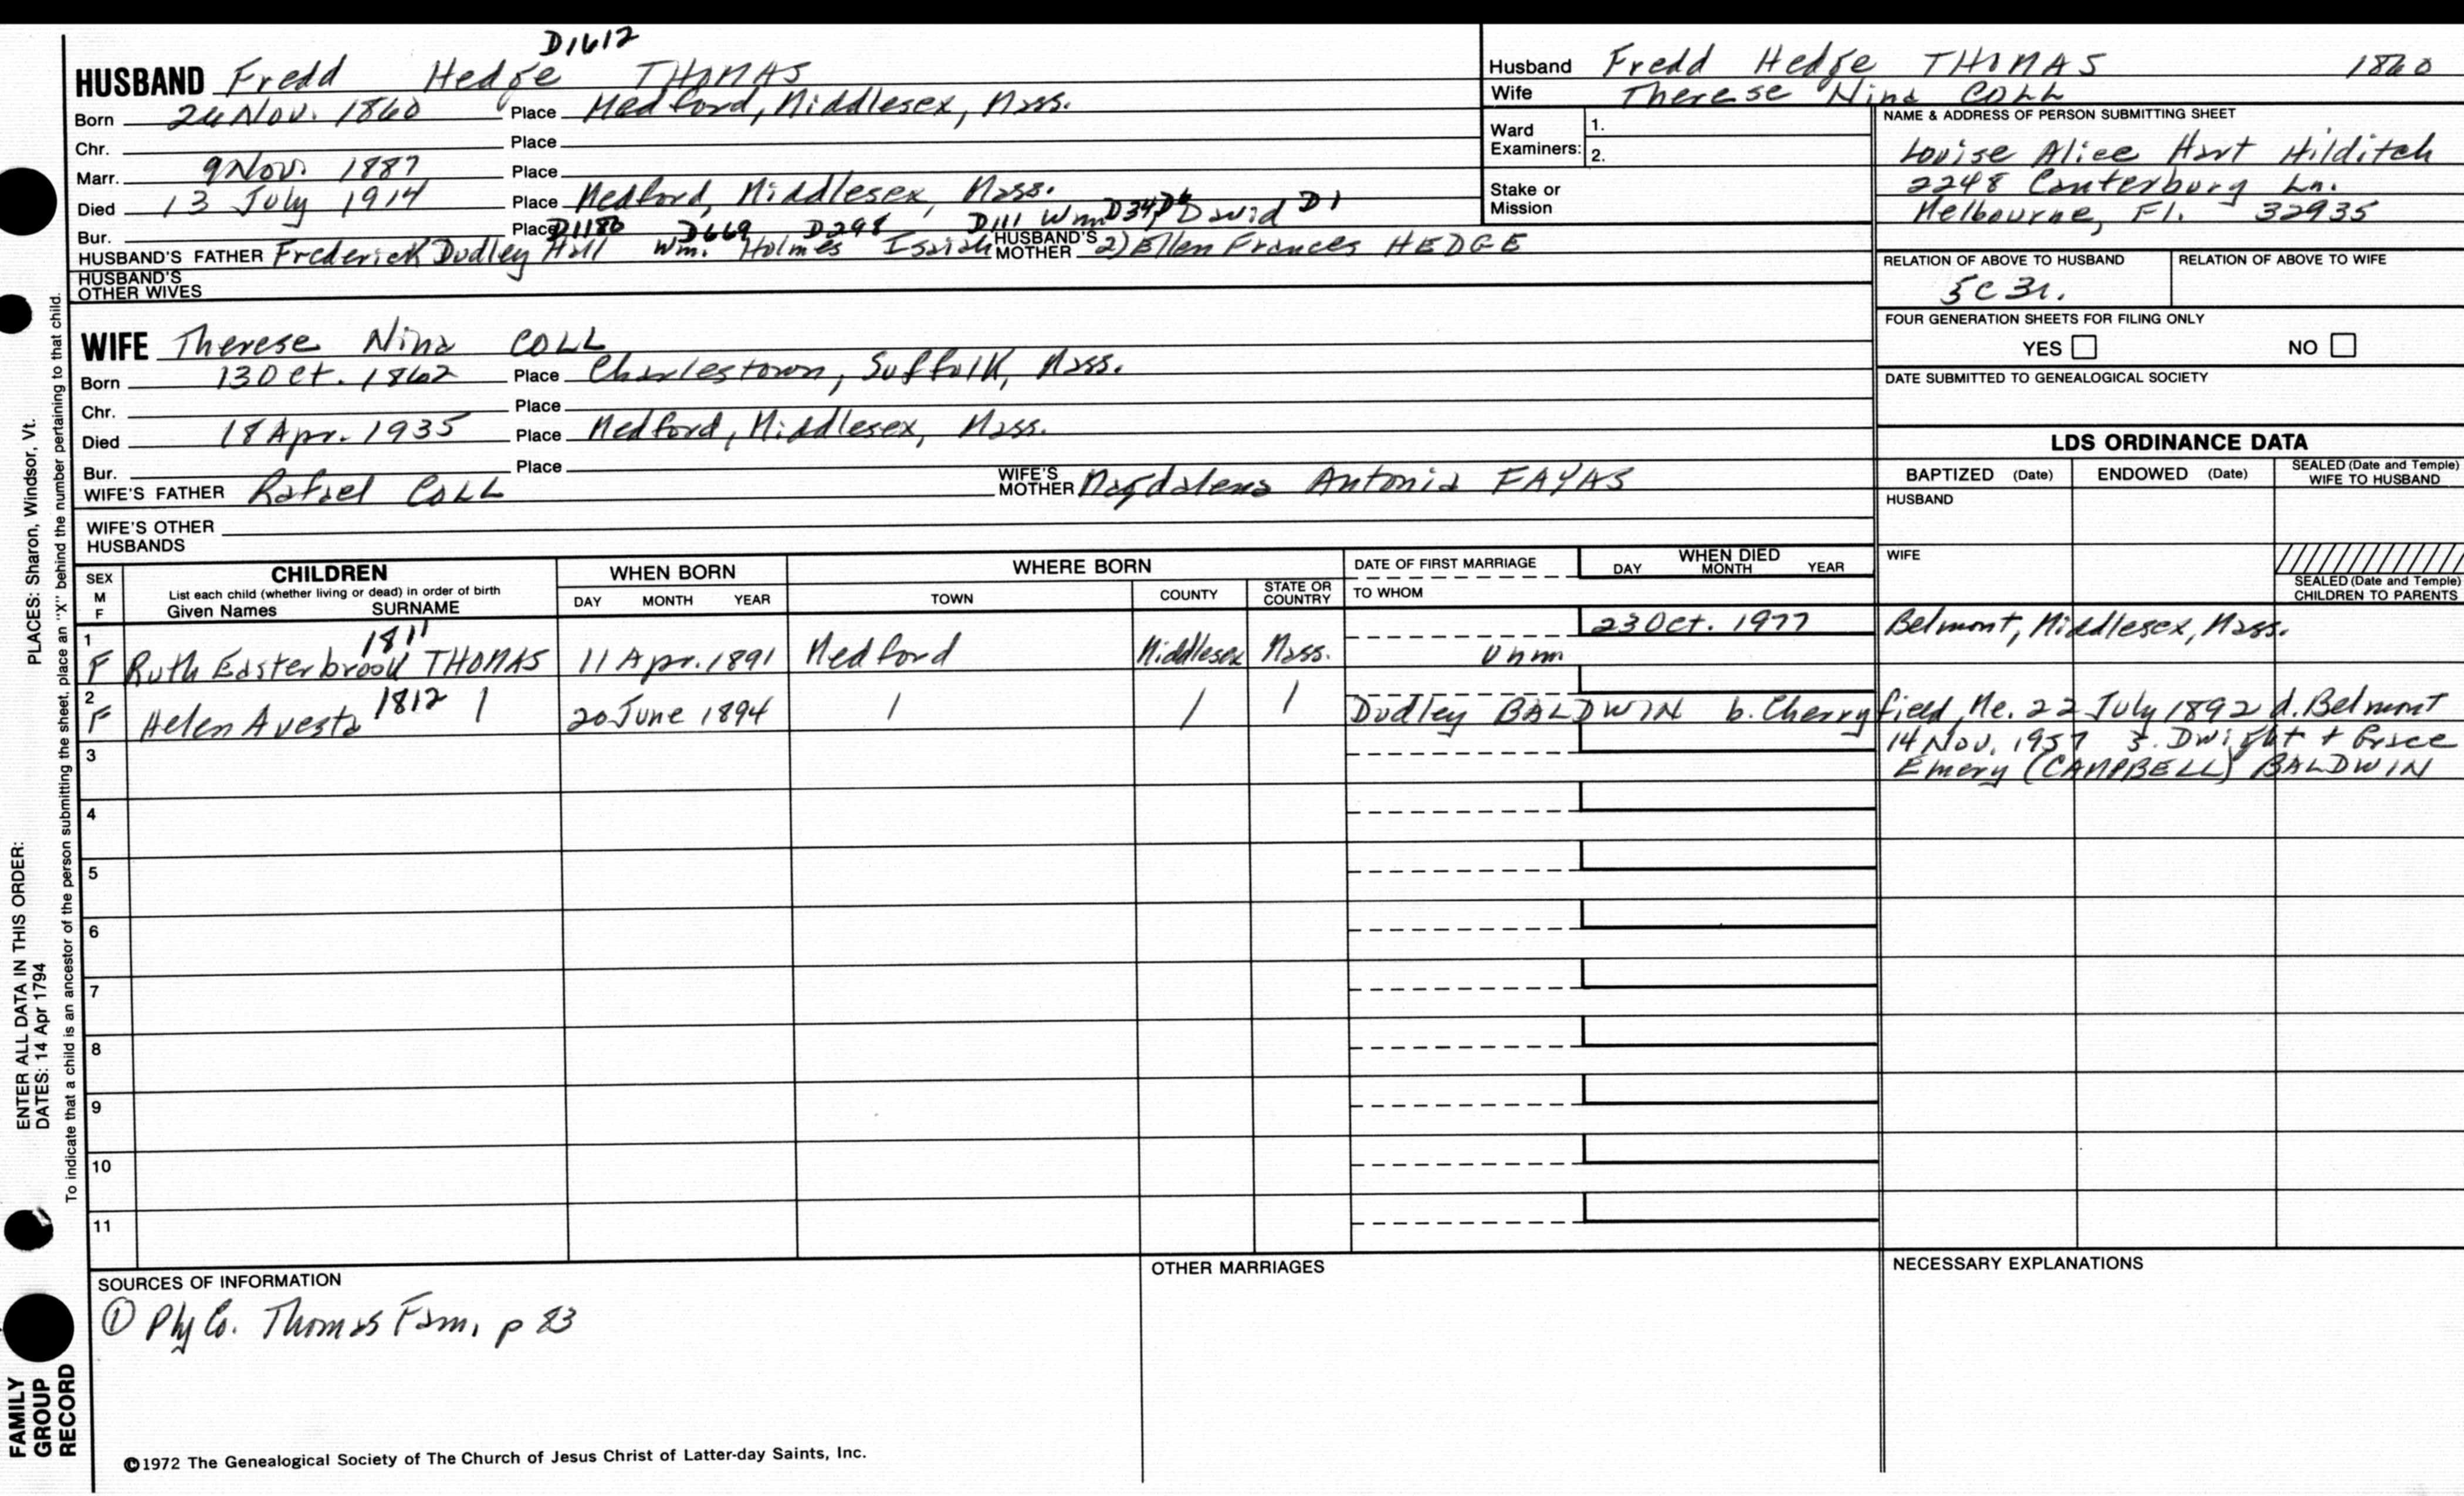 D1612
HUSBAND Fredd Hedge THOMAS
Born 24 Nov. 1860 Place Medford, Middlesex, Mass.
Chr. Place
Marr. 9 Nov. 1887 Place
Died 13 July 1914 Place Medford, Middlesex, Mass.
Bur. Place D1180 D669 D298 D111 Wm D34 D6 David D1
HUSBAND'S FATHER Frederick Dudley Hall Wm. Holmes Isaiah HUSBAND'S MOTHER 2) Ellen Frances HEDGE
HUSBAND'S OTHER WIVES
WIFE Therese Nina COLL
Born 13 Oct. 1862 Place Charlestown, Suffolk, Mass.
Chr. Place
Died 18 Apr. 1935 Place Medford, Middlesex, Mass.
Bur. Place
WIFE'S FATHER Rafael COLL WIFE'S MOTHER Magdalena Antonia FAYAS
WIFE'S OTHER HUSBANDS
Husband Fredd Hedge THOMAS 1860
Wife Therese Nina COLL
Ward Examiners: 1.
2.
Stake or Mission
NAME & ADDRESS OF PERSON SUBMITTING SHEET
Louise Alice Hart Hilditch
2248 Canterbury Ln.
Melbourne, Fl. 32935
RELATION OF ABOVE TO HUSBAND RELATION OF ABOVE TO WIFE
5C3r.
FOUR GENERATION SHEETS FOR FILING ONLY
YES NO
DATE SUBMITTED TO GENEALOGICAL SOCIETY
LDS ORDINANCE DATA
BAPTIZED (Date) ENDOWED (Date) SEALED (Date and Temple) WIFE TO HUSBAND
HUSBAND
WIFE
SEALED (Date and Temple) CHILDREN TO PARENTS
SEX M F CHILDREN WHEN BORN WHERE BORN DATE OF FIRST MARRIAGE WHEN DIED
List each child (whether living or dead) in order of birth
Given Names SURNAME DAY MONTH YEAR TOWN COUNTY STATE OR COUNTRY TO WHOM DAY MONTH YEAR
1 1811 23 Oct. 1977 Belmont, Middlesex, Mass.
F Ruth Easterbrook THOMAS 11 Apr. 1891 Medford Middlesex Mass. Unm
2 1812
F Helen Avesta 20 June 1894 Dudley BALDWIN b. Cherryfield, Me. 22 July 1892 d. Belmont
3 14 Nov. 1957 s. Dwight + Grace
Emery (CAMPBELL) BALDWIN
4
5
6
7
8
9
10
11
SOURCES OF INFORMATION OTHER MARRIAGES NECESSARY EXPLANATIONS
① Ply Co. Thomas Fam, p 83
©1972 The Genealogical Society of The Church of Jesus Christ of Latter-day Saints, Inc.
ENTER ALL DATA IN THIS ORDER:
DATES: 14 Apr 1794 PLACES: Sharon, Windsor, Vt.
To indicate that a child is an ancestor of the person submitting the sheet, place an "X" behind the number pertaining to that child.
FAMILY
GROUP
RECORD